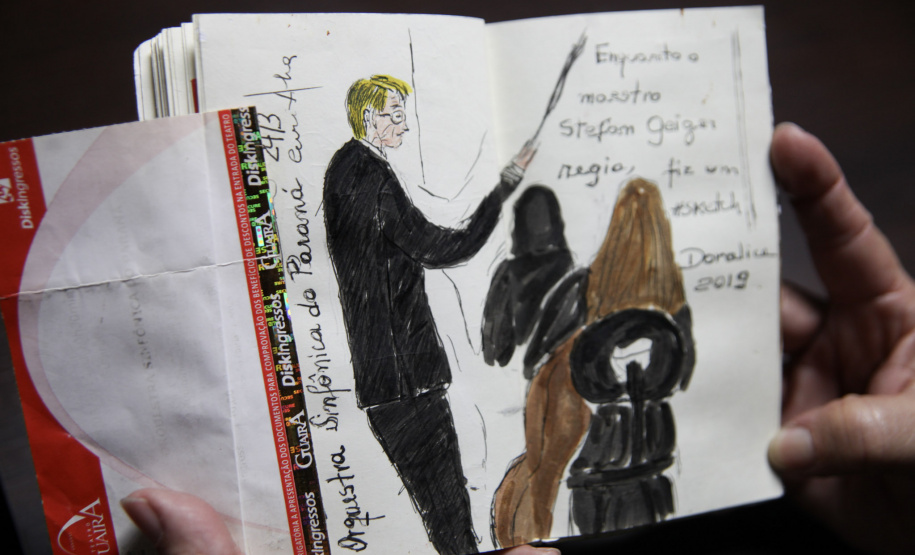 Enquanto o
maestro
Stefan Geiger
regia, fiz um
#sketch
Doralice
2019
Orquestra Sinfônica do Paraná
24/3
DiskIngressos
DiskIngressos GUAIRA DiskIngressos GUAIRA DiskIngressos
OBRIGATÓRIA A APRESENTAÇÃO DOS DOCUMENTOS PARA COMPROVAÇÃO DOS BENEFÍCIO DE DESCONTOS NA ENTRADA DO TEATRO
GUAÍRA